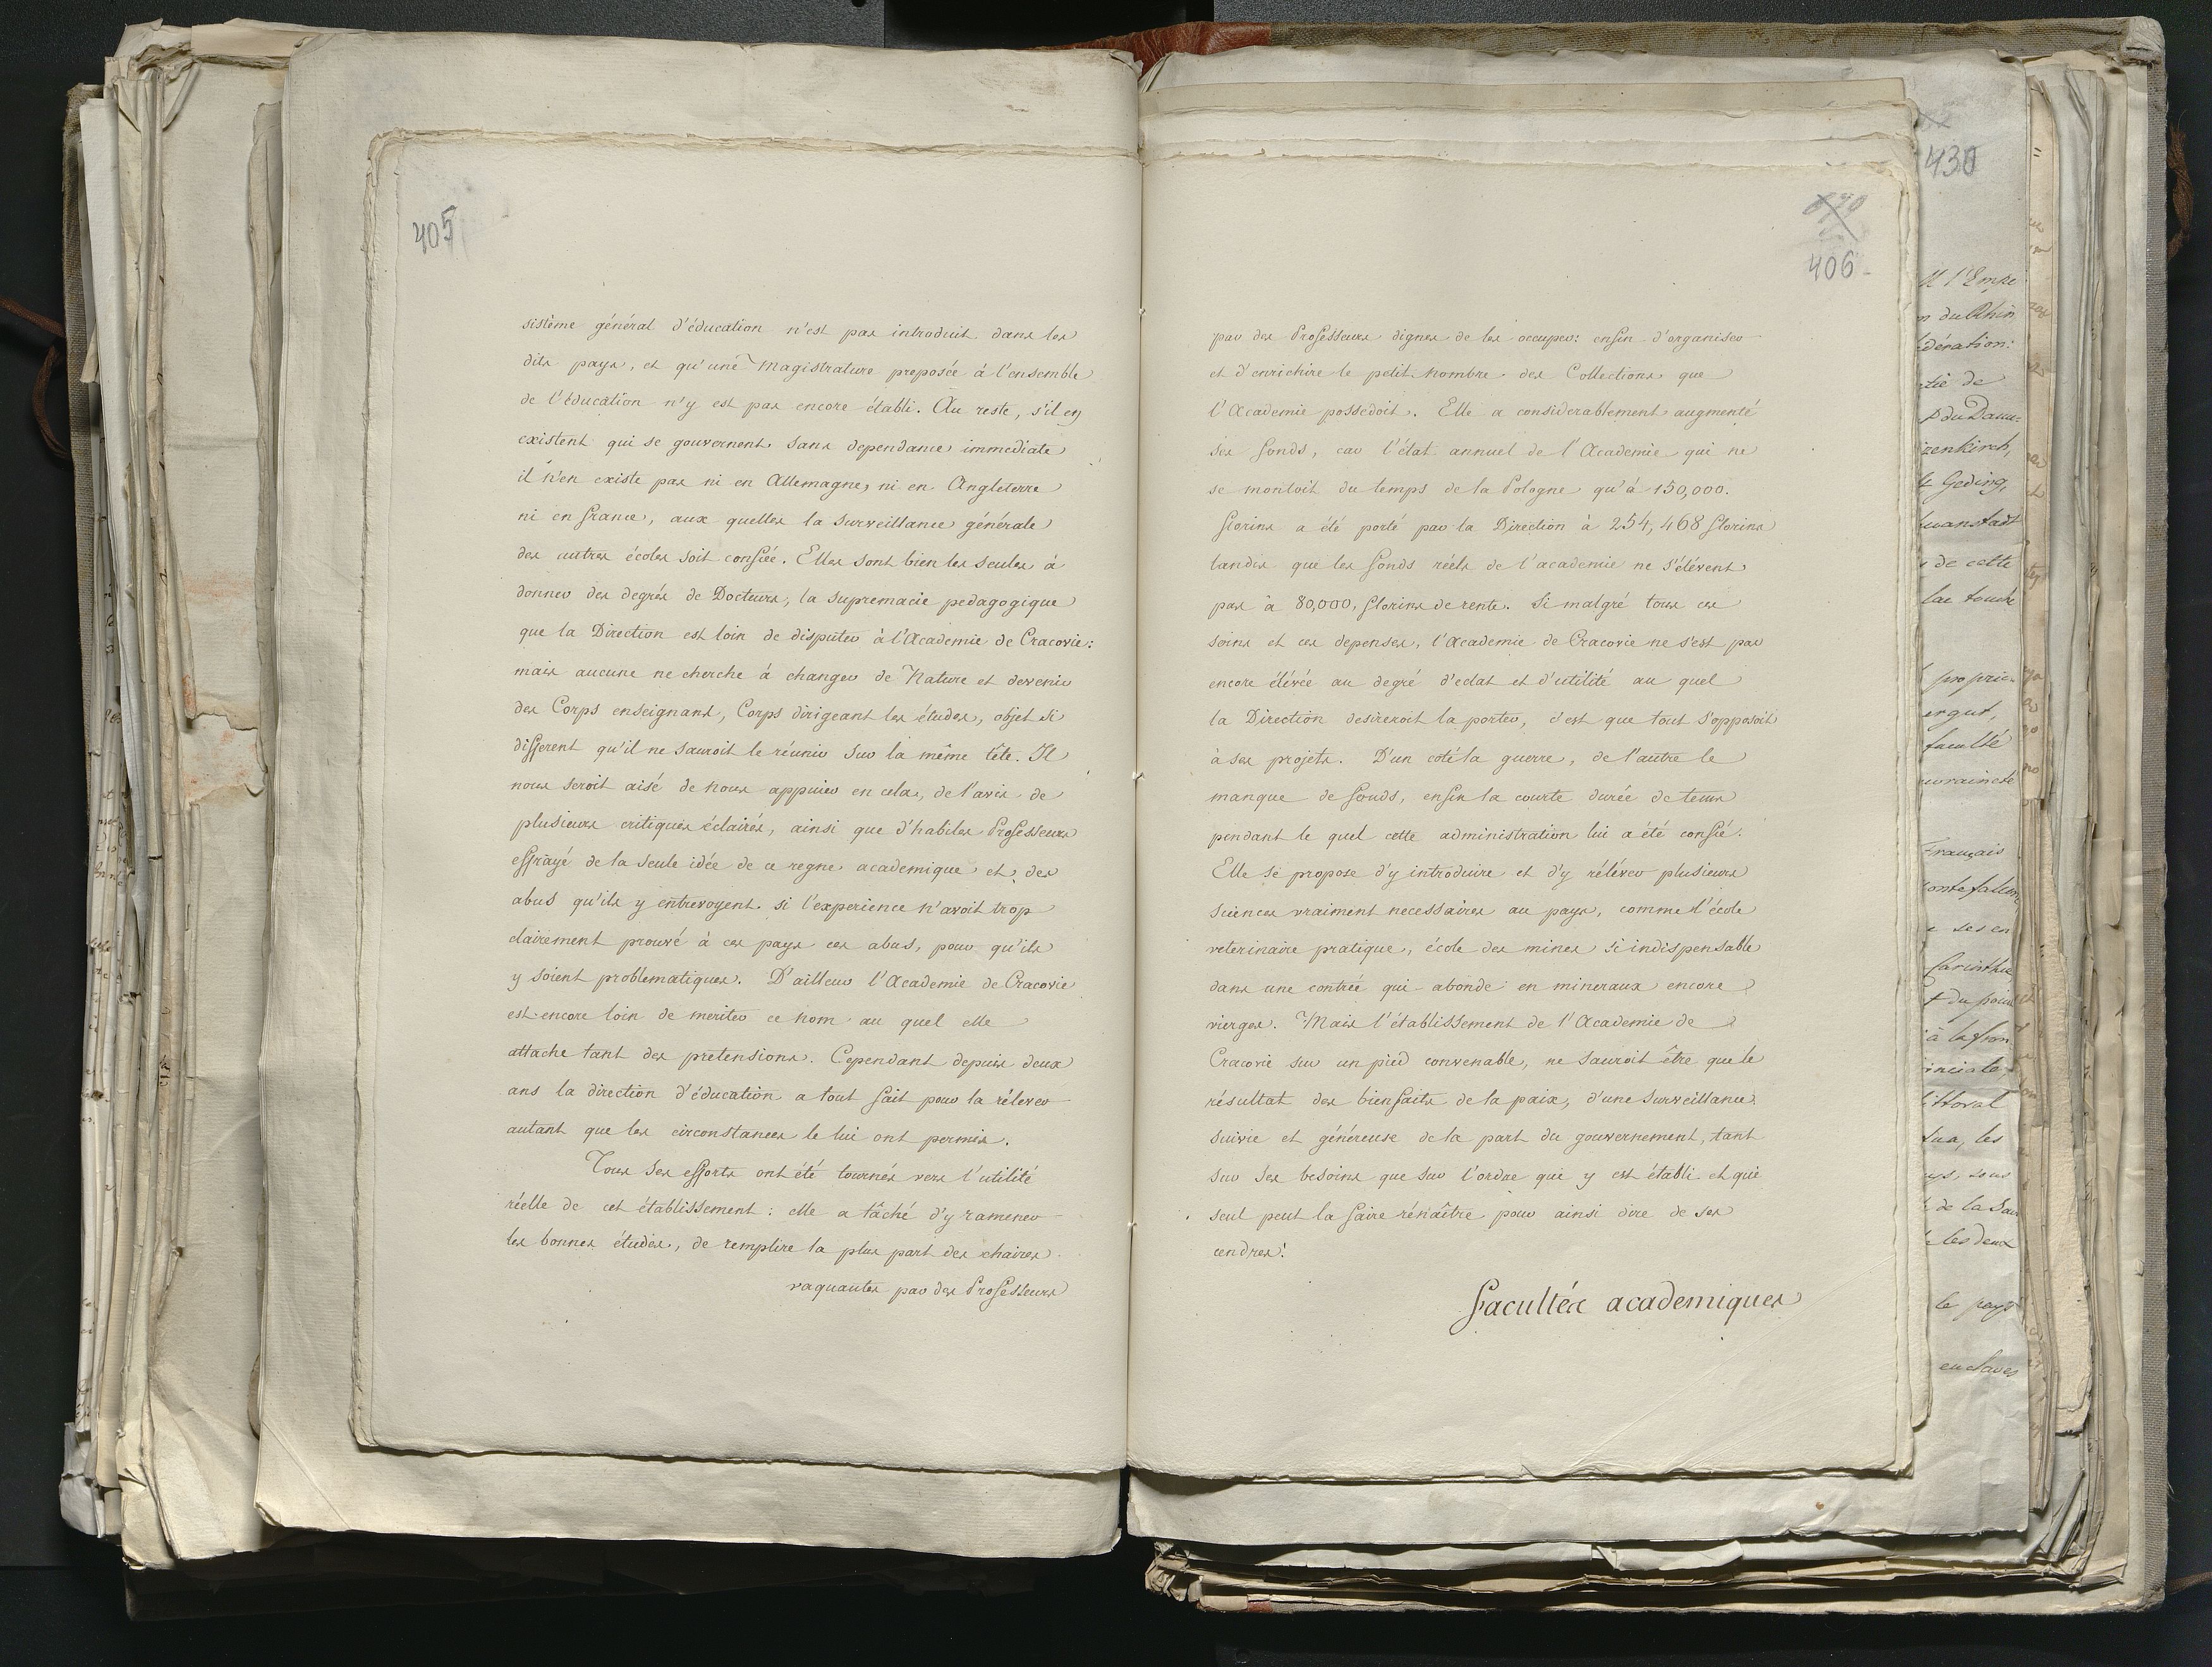 405
sistême général d'éducation n'est pas introduit dans les
dits pays, et qu'une Magistrature preposée à l'ensemble
de l'éducation n'y est pas encore établi. Au reste, s'il en
existent qui se gouvernent sans dependance immediate
il n'en existe pas ni en Allemagne, ni en Angleterre
ni en france, aux quelles la surveillance générale
des autres écoles soit confiée. Elles sont bien les seules à
donner des degrés de Docteurs, la supremacie pedagogique
que la Direction est loin de disputer à l'Academie de Cracovie:
mais aucune ne cherche à changer de Nature et devenir
des Corps enseignans, Corps dirigeant les études, objet si
different qu'il ne sauroit le réunir sur la même tête. Il
nous seroit aisé de nous appuier en cela, de l'avis de
plusieurs critiques éclairés, ainsi que d'habiles Professeurs
effrayé de la seule idée de ce regne academique et des
abus qu'ils y entrevoyent. si l'experience n'avoit trop
clairement prouvé à ces pays ces abus, pour qu'ils
y soient problematiques. D'ailleur l'Academie de Cracovie
est encore loin de meriter ce nom au quel elle
attache tant des pretensions. Cependant depuis deux
ans la direction d'éducation a tout fait pour la rélever
autant que les circonstances le lui ont permis.
Tous ses efforts ont été tournés vers l'utilité
réelle de cet établissement: elle a tâché d'y ramener
les bonnes études, de remplire la plus part des chaires
vaquantes par des Professeurs
406
par des Professeurs dignes de les occuper: enfin d'organiser
et d'enrichire le petit nombre des Collections que
l'Academie possedoit. Elle a considerablement augmenté
ses fonds, car l'état annuel de l'Academie qui ne
se montoit du temps de la Pologne qu'à 150,000.
florins a été porté par la Direction à 254,468 florins
tandis que les fonds réels de l'academie ne s'élévent
pas à 80,000, florins de rente. Si malgré tous ces
soins et ces depenses, l'Academie de Cracovie ne s'est pas
encore élévée au degré d'eclat et d'utilité au quel
la Direction desireroit la porter, c'est que tout s'opposoit
à ses projets. D'un coté la guerre, de l'autre le
manque de fonds, enfin la courte durée de tems
pendant le quel cette administration lui a été confié.
Elle se propose d'y introduire et d'y rélever plusieurs
sciences vraiment necessaires au pays, comme l'école
veterinaire pratique, école des mines si indispensable
dans une contrée qui abonde en mineraux encore
vierges. Mais l'établissement de l'Academie de
Cracovie sur un pied convenable, ne sauroit être que le
résultat des bienfaits de la paix, d'une surveillance
suivie et généreuse de la part du gouvernement, tant
sur ses besoins que sur l'ordre qui y est établi et qui
seul peut la faire rénaître pour ainsi dire de ses
cendres.
facultés academiques
430
l'Empe
du Rhin
dération:
tié de
Geding,
de cette
proprié-
faculté
Français
ses en
Carinthie
à la fron
ittoral
les
sous
de la Sav
les deux
le pays
enclaves